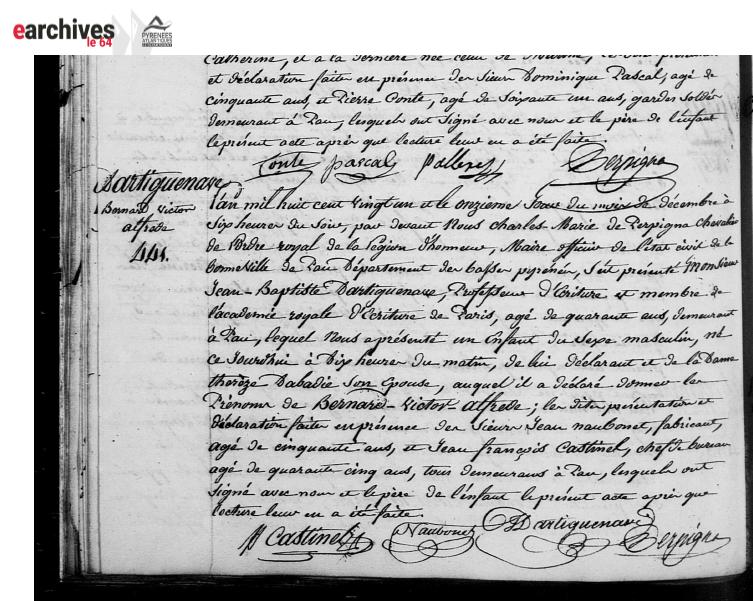 earchives
le 64
PYRÉNÉES
ATLANTIQUES
LE DÉPARTEMENT
Catherine, et à la dernière née celui de
et déclaration faite en présence des Sieurs Dominique Pascal, agé de
cinquante ans, et Pierre Conte, agé de Soixante un ans, gardes soldés
demeurant à Pau, lesquels ont Signé avec nous et le père de l'enfant
le présent acte après que lecture leur en a été faite.
Conte Pascal Derpigna
Dartiguenave
Bernard Victor
alfrede
441.
L'an mil huit cent vingt un et le onzième Jour du mois de décembre à
Six heures du Soir, par devant Nous Charles Marie de Perpigna Chevalier
de l'ordre royal de la légion d'honneur, Maire officier de l'état civil de la
bonne Ville de Pau Département des basses pyrénées, S'est présenté Monsieur
Jean-Baptiste Dartiguenave, Professeur d'Ecriture et membre de
l'académie royale d'Ecriture de Paris, agé de quarante ans, demeurant
à Pau, lequel Nous a présenté un Enfant du Sexe masculin, né
ce Jourd'hui à Dix heures du matin, de lui déclarant et de la Dame
thérèze Dabadie Son Epouse, auquel il a déclaré donner les
Prénoms de Bernard-Victor-alfrede; les dites présentation et
déclaration faite en présence des Sieurs Jean naubonet, fabricant,
agé de cinquante ans, et Jean françois Castinel, chef de bureau
agé de quarante cinq ans, tous demeurans à Pau, lesquels ont
Signé avec nous et le père de l'enfant le présent acte après que
lecture leur en a été faite.
Castinel Naubonet Dartiguenave Derpigna